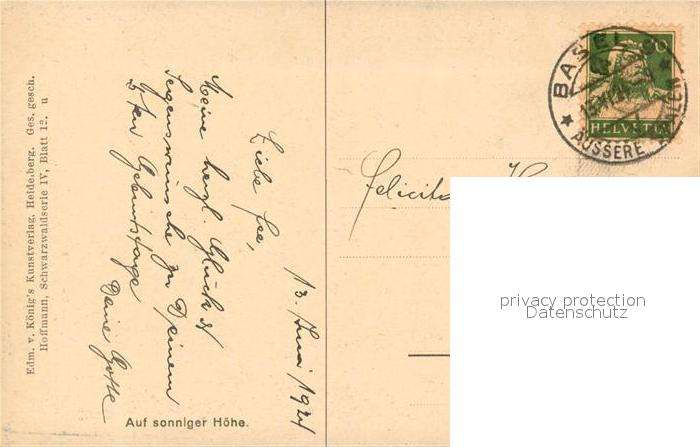 Edm. v. König's Kunstverlag, Heidelberg. Ges. gesch.
Hoffmann, Schwarzwaldserie IV, Blatt 12. u
13. Juni 1921
Liebe Fee,
Meine herzl. Glück &
Segenswünsche zu Deinem
Geburtstage
Deine Gotte
Auf sonniger Höhe.
BASEL
HELVETIA
AUSSERE
privacy protection
Datenschutz